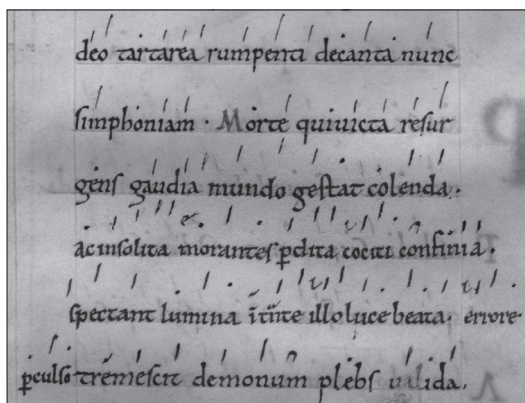 deo tartarea rumpenti decanta nunc
simphoniam · Morte quiuicta resur
gens gaudia mundo gestat colenda.
ac insolita morantes pdita cociti confinia.
spectant lumina illo luce beata. errore
pculso tremescit demonum plebs ualida.